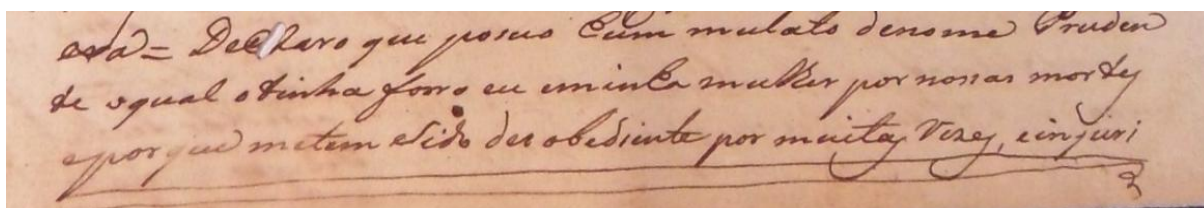 erá = Declaro que posuo hum mulato denome Pruden
te oqual otinha forro eu eminha mulher por nossas mortes
eporque metem sido des obediente por muitas Vezes, einjuri